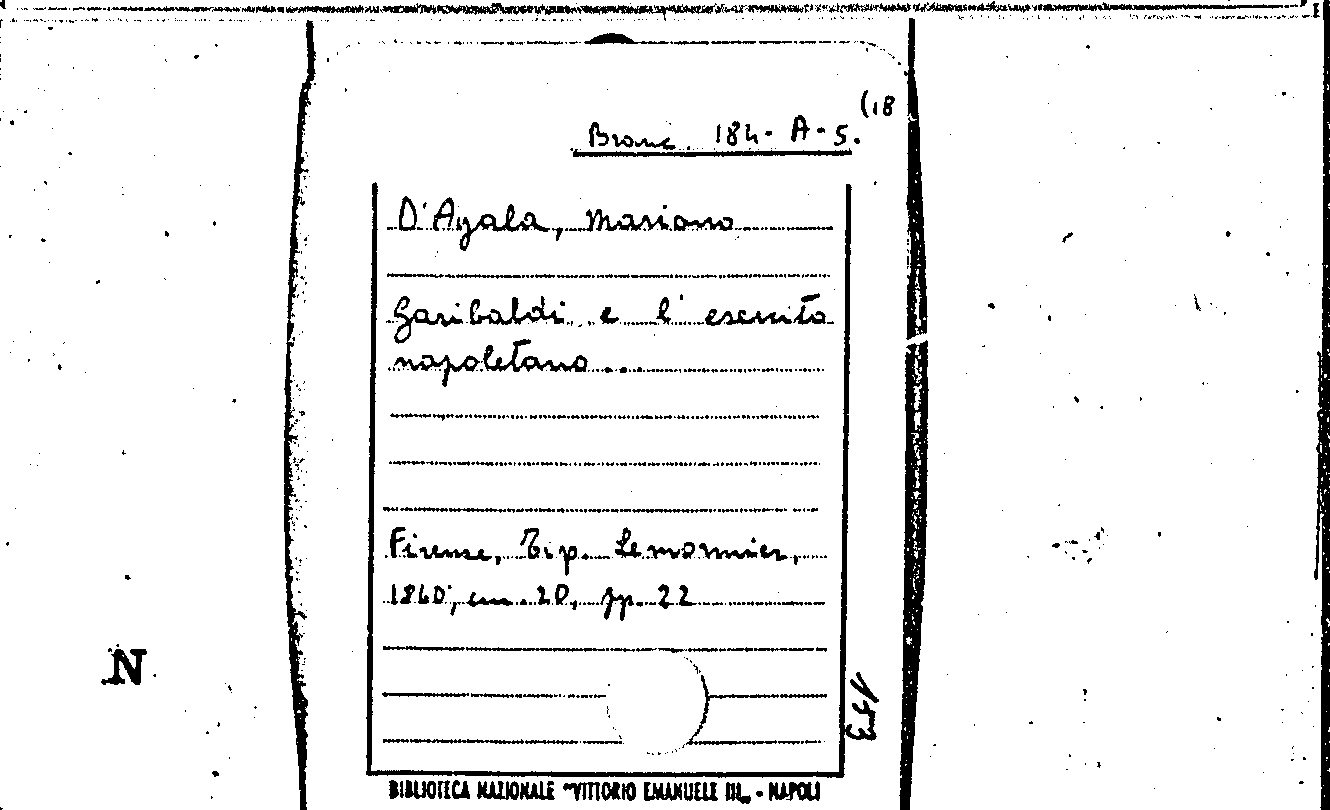 (18
Branc. 184-A-5.
D'Ayala, Mariano
Garibaldi e l'esercito
napoletano...
Firenze, Tip. Lemonnier,
1860, cm. 20, pp. 22
N
153
BIBLIOTECA NAZIONALE "VITTORIO EMANUELE III„ - NAPOLI